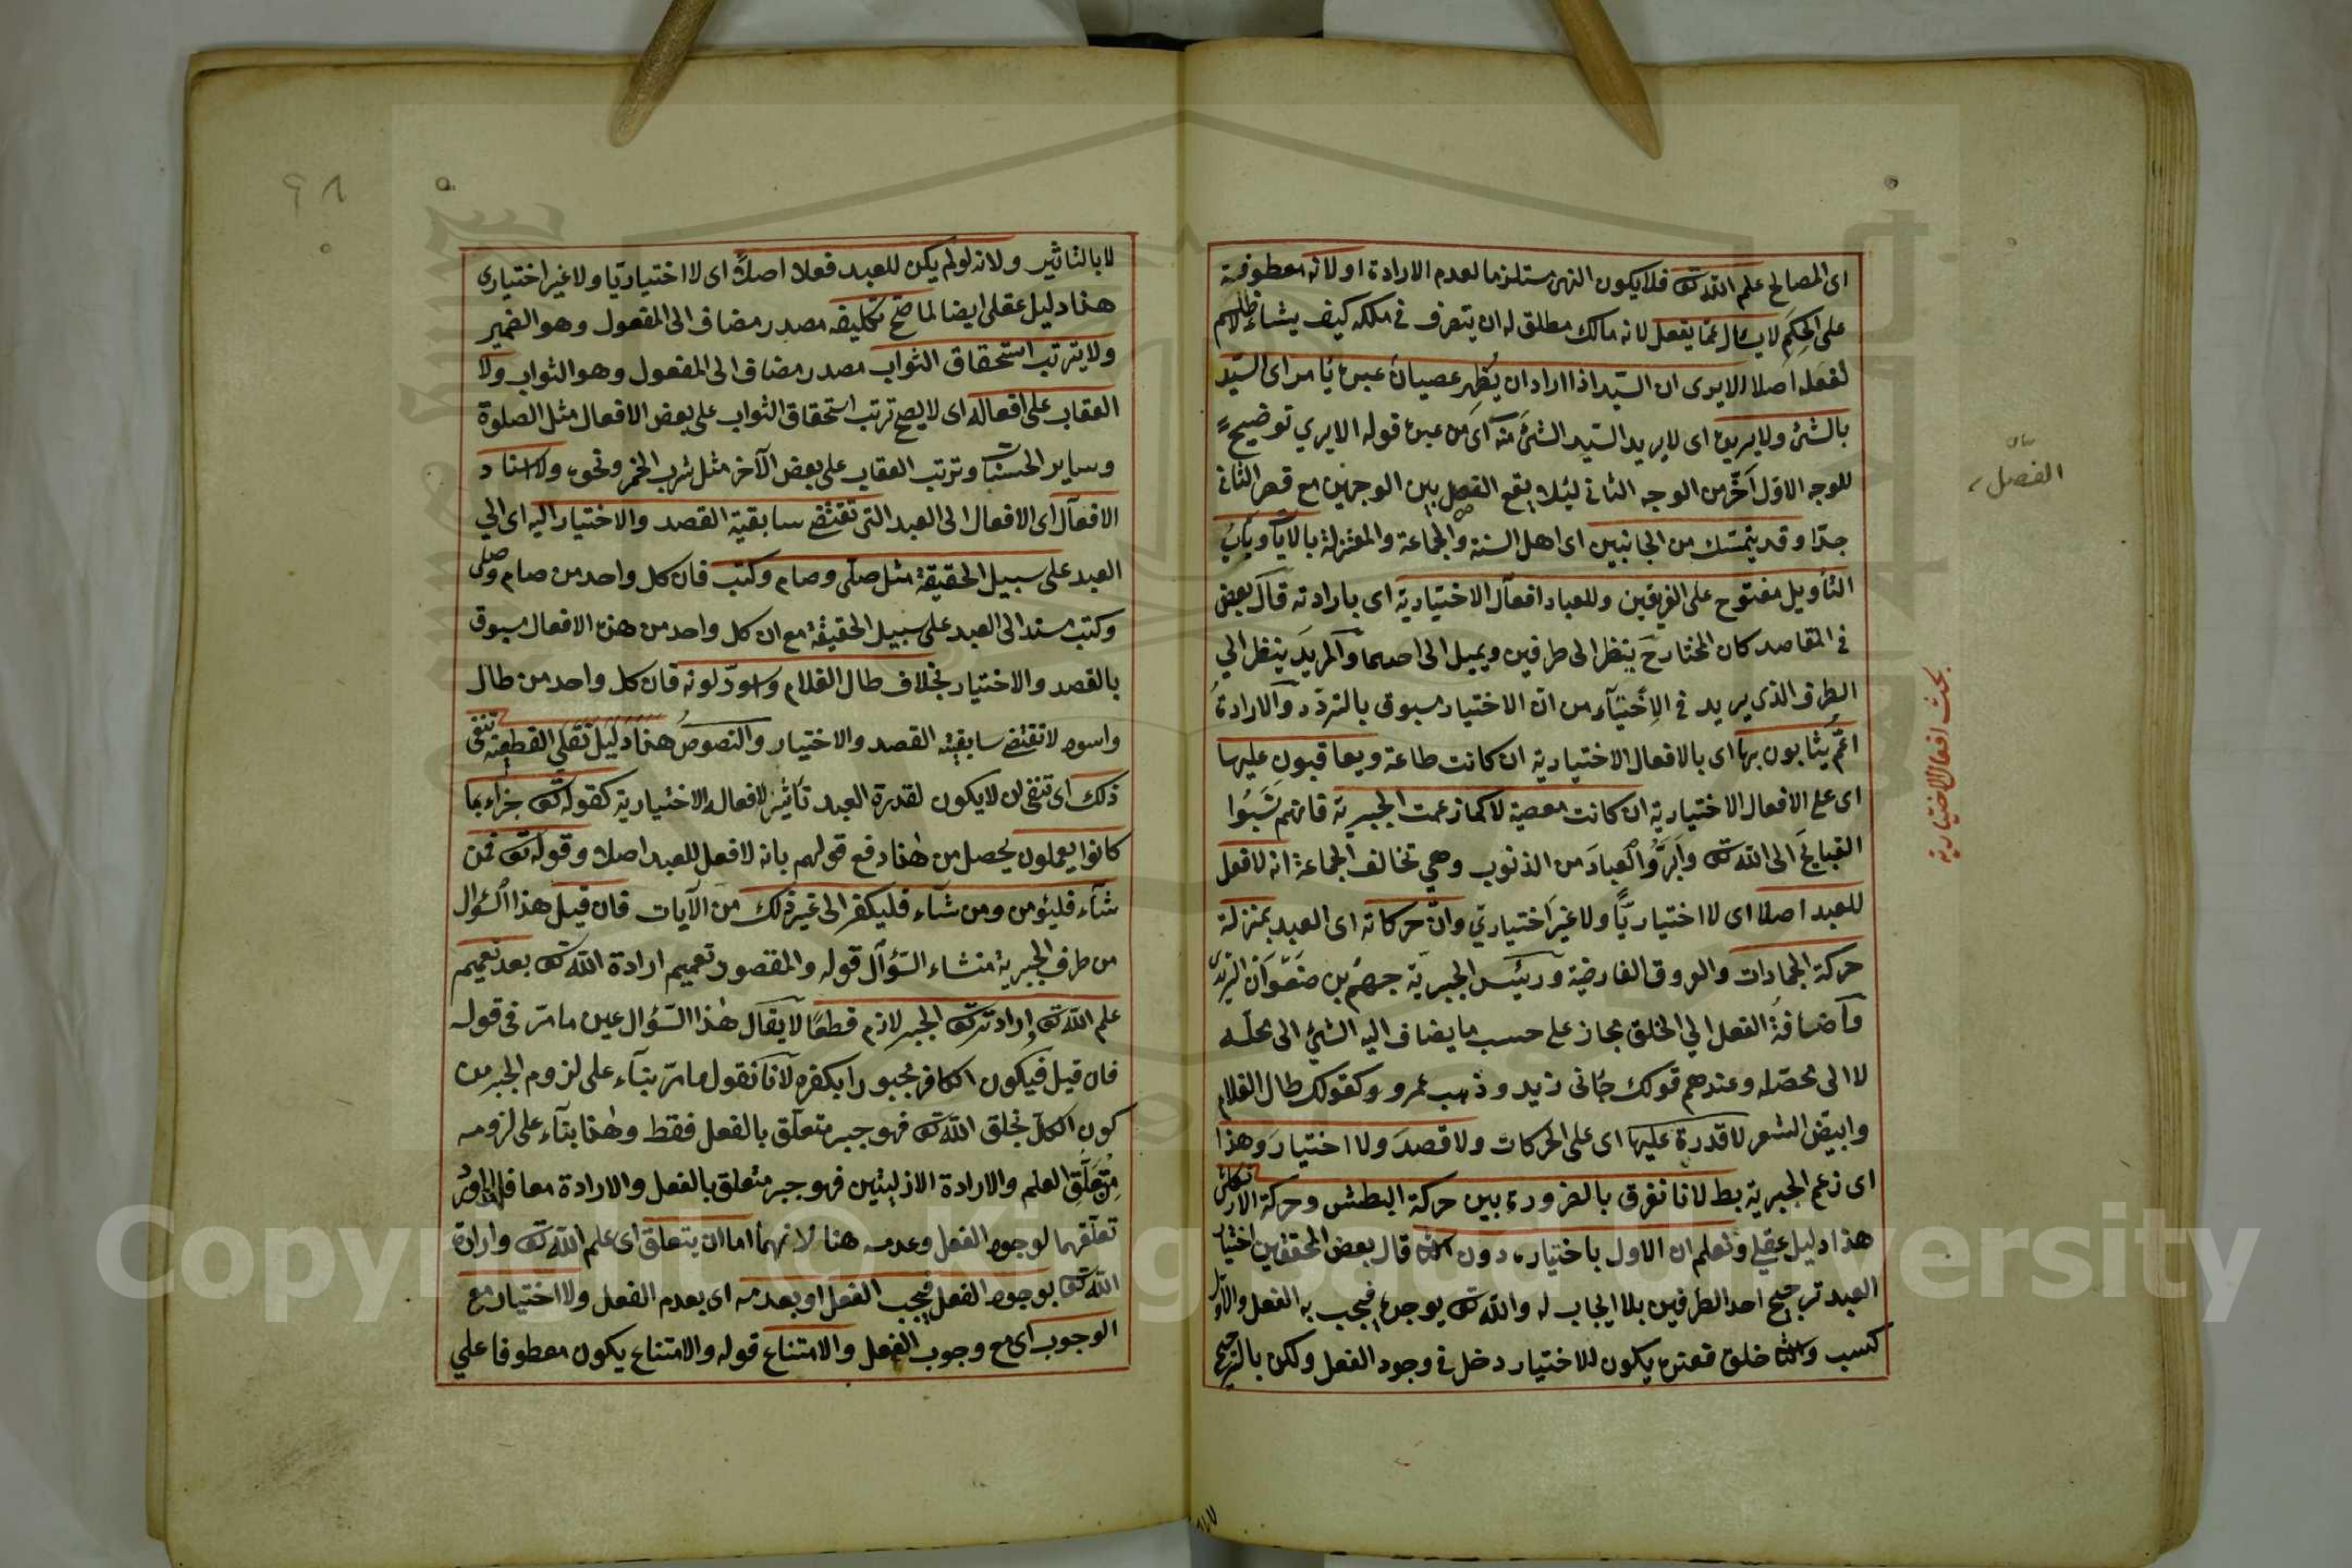 اى المصالح علم الله تع فلا يكون النهى مستلزما لعدم الارادة او لانه معطوفة
على الحِكَمِ لا يسال عما يفعل لانه مالك مطلق له ان يتصرف فى ملكه كيف يشاء
لفعله اصلا الا يرى ان السّيد اذا اراد ان يُظهِر عصيانَ عبده يأمر اى السّيد
بالشئ ولا يريده اى لا يريد السّيد الشئ منه اى من عبده قوله الا يري توضيح
للوجه الاوّل اخّر من الوجه الثانى ليئلا يقع الفصل بين الوجهين مع قصر الثانى
جدّا وقد يتمسّك من الجانبين اى اهل السنة والجماعة والمعتزلة بالايات وباب
التأويل مفتوح على الفريقين وللعباد افعال الاختيارية اى بارادته قال بعض
فى المقاصد كان المختار ح ينظر الى طرفين ويميل الى احدهما والمريد ينظر الي
الطرف الذى يريد فى الاختيار من ان الاختيار مسبوق بالتردّد والارادة
اعمّ يثابون بها اى بالافعال الاختيارية ان كانت طاعة ويعاقبون عليها
اى على الافعال الاختيارية ان كانت معصية لا كما زعمت الجبرية فانهم نسبُوا
القبايح الى الله تع وابرؤُا العبادَ من الذنوب وهي تخالف الجماعة انه لا فعل
للعبد اصلا اى لا اختياريًّا ولا غير اختياري وانّ حركاته اى العبد بمنزلة
حركة الجمادات والعروق الفارضية ورئيس الجبريّة جهم بن صفوان الترمذى
واضافةُ الفعل الي الخلق مجاز على حسب ما يضاف اليه الشئ الى محلّه
لا الى محصّله وعندهم قولك جائنى زيد وذهب عمرو وكقولك طال الغلام
وابيض الشعر لا قدرة عليها اى على الحركات ولا قصدَ ولا اختيارَ وهذا
اى زعم الجبرية بط لانا نفرق بالضرورة بين حركة البطش وحركة الارتعاش
هذا دليل عقلي ونعلم ان الاول باختياره دون الثانى قال بعض المحققين اختيار
العبد ترجيح احد الطرفين بلا ايجاب له والله تع يوجده فيجب به الفعل والاول
كسب والثانى خلق فعنده يكون للاختيار دخل فى وجود الفعل ولكن بالترجيح
بيان
الفصل
بحث افعال الاختيارية
٩٨
لا بالتاثير ولانه لو لم يكن للعبد فعلا اصلاً اى لا اختياريّا ولا غير اختيارى
هذا دليل عقلى ايضا لما صحّ تكليفه مصدر مضاف الى المفعول وهو الضمير
ولا يترتب استحقاق الثواب مصدر مضاف الى المفعول وهو الثواب ولا
العقاب على افعاله اى لا يصح ترتب استحقاق الثواب على بعض الافعال مثل الصلوة
وساير الحسنات وترتب العقاب على بعض الآخر مثل شرب الخمر ونحوه ولا اسناد
الافعال اى الافعال الى العبد التى تقتضى سابقية القصد والاختيار اليه اى الي
العبد على سبيل الحقيقة مثل صلّى وصام وكتب فان كل واحد من صام وصلى
وكتب مسند الى العبد على سبيل الحقيقة مع ان كل واحد من هذه الافعال مسبوق
بالقصد والاختيار بخلاف طال الغلام واسودّ لونه فان كل واحد من طال
واسود لا تقتضى سابقية القصد والاختيار والنصوصُ هذا دليل نقلي القطعية تنفى
ذلك اى تنفى ان لا يكون لقدرة العبد تأثير لافعاله الاختيارية كقوله تع جزاء بما
كانوا يعملون يحصل من هذا دفع قولهم بانه لا فعل للعبد اصلا وقوله تع فمن
شآء فليؤمن ومن شآء فليكفر الى غير ذلك من الآيات فان قيل هذا السّؤال
من طرف الجبرية منشاء السّؤال قوله والمقصود تعميم ارادة الله تع بعد تعميم
علم الله تع وارادته تع الجبر لازم قطعًا لا يقال هذا السّؤال عين ما مرّ فى قوله
فان قيل فيكون الكافر مجبورا بكفره لانا نقول ما مرّ بنآء على لزوم الجبر من
كون الكل بخلق الله تع فهو جبر متعلّق بالفعل فقط وهذا بنآء على لزومه
من تعلّقِ العلم والارادة الازليتين فهو جبر متعلق بالفعل والارادة معا
تعلّقهما لوجود الفعل وعدمه هنا لانهما اما ان يتعلق اى علم الله تع وارادة
الله تع بوجود الفعل فيجب الفعل او بعدمه اى بعدم الفعل ولا اختيار مع
الوجوب اى مع وجوب الفعل والامتناع قوله والامتناع يكون معطوفا علي
Copyright © King Saud University